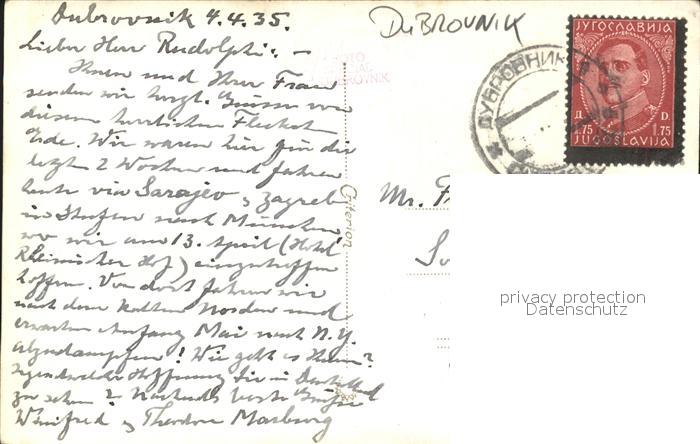 Dubrovnik 4.4.35.
Lieber Herr Rudolphi: —
Ihnen und Ihrer Frau
senden wir herzl. Grüsse von
diesem herrlichen Fleckch.
Erde. Wir waren hier für die
letzt. 2 Wochen und fahren
heute via Sarajevo & Zagreb
in Stufen nach München
wo wir am 13. April (Hotel
Rheinischer Hof) einzutreffen
hoffen. Von dort fahren wir
nach dem kalten Norden und
erwarten Anfang Mai nach N.Y.
abzudampfen! Wie geht es Ihnen?
Irgendwelche Hoffnung Sie in Deutschland
zu sehen? Nochmals beste Grüsse
Winifred & Theodore Marburg
DUBROVNIK
FOTO
DUBROVNIK
Criterion
ДУБРОВНИК
ЈУГОСЛАВИЈА
Д. D.
1.75 1.75
JUGOSLAVIJA
Mr. F
So
privacy protection
Datenschutz